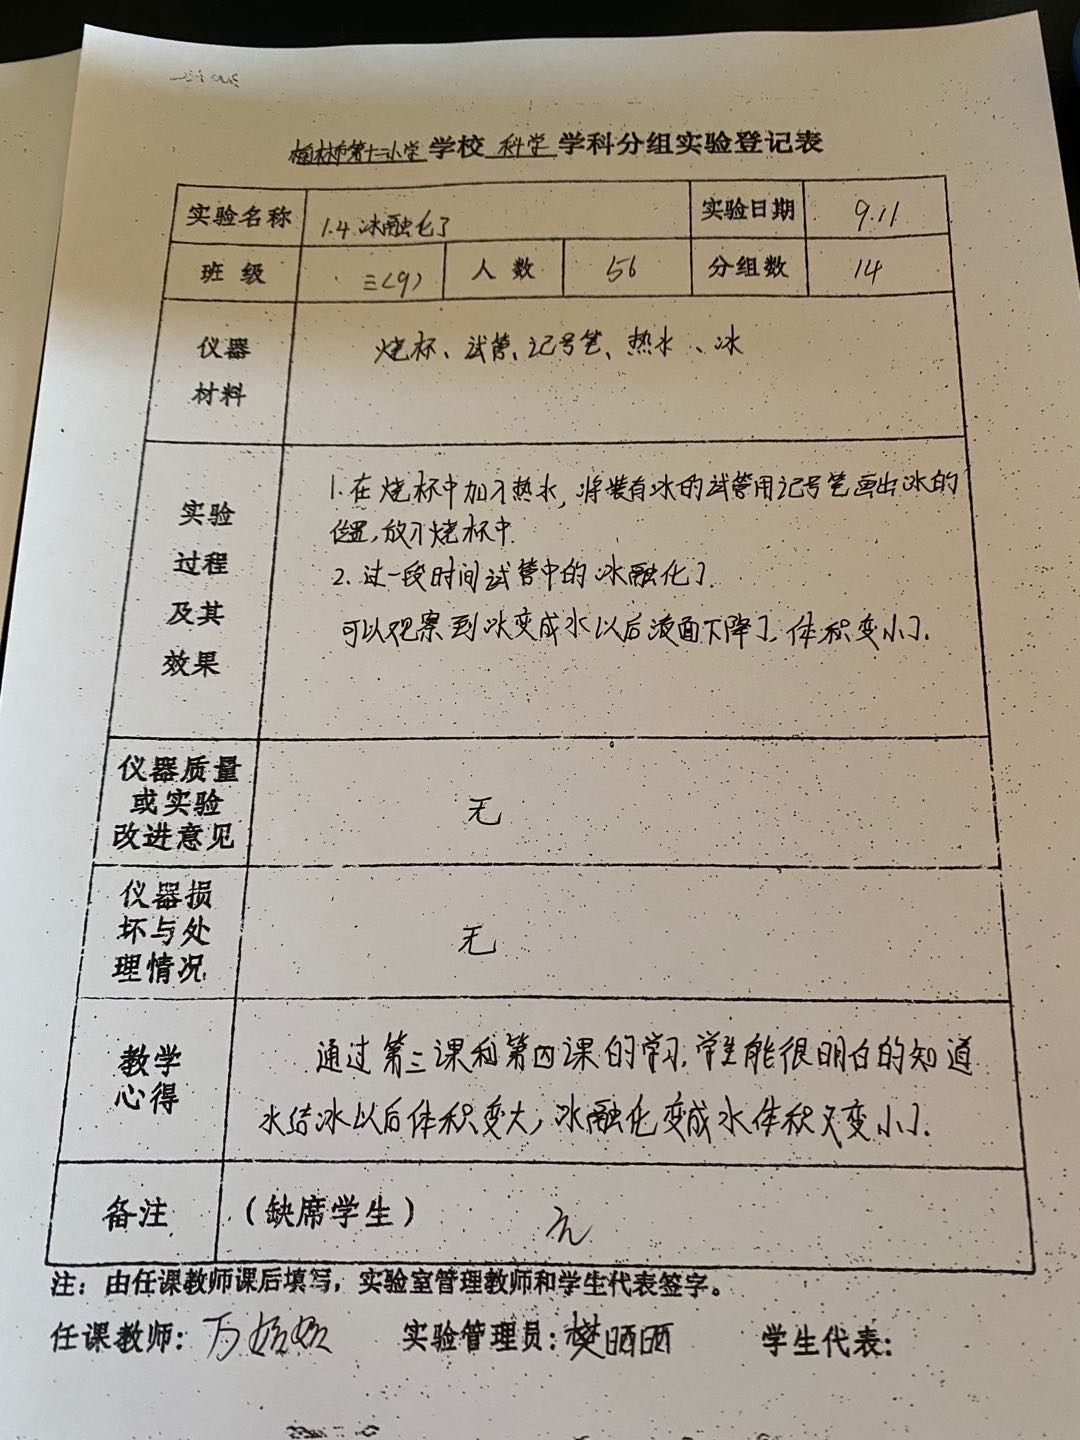 榆林市第十二小学学校 科学 学科分组实验登记表
实验名称 1.4 冰融化了 实验日期 9.11
班级 三(9) 人数 56 分组数 14
仪器
材料
烧杯、试管、记号笔、热水、冰
实验
过程
及其
效果
1.在烧杯中加入热水,将装有冰的试管用记号笔画出冰的
位置,放入烧杯中.
2.过一段时间试管中的冰融化了.
可以观察到冰变成水以后液面下降了,体积变小了.
仪器质量
或实验
改进意见
无
仪器损
坏与处
理情况
无
教学
心得
通过第三课和第四课的学习,学生能很明白的知道
水结冰以后体积变大,冰融化变成水体积又变小了.
备注 (缺席学生) 无
注:由任课教师课后填写,实验室管理教师和学生代表签字。
任课教师: 实验管理员:樊晒晒 学生代表: